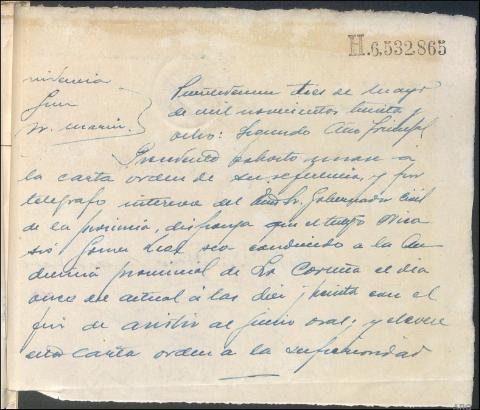 H.6,532.865
Providencia
Juez
Sr. Marín.
Puentedeume diez de Mayo
de mil novecientos treinta y
ocho: Segundo Año Triunfal
Precédente únase a
la carta orden de su referencia, y por
telégrafo interesa del Excmo Sr. Gobernador Civil
de la provincia, disponga que el testigo
Gomez Diaz sea conducido a la Au
diencia provincial de La Coruña el día
once del actual á las diez y treinta con el
fin de asistir al juicio oral; y elevese
esta carta orden a la superioridad